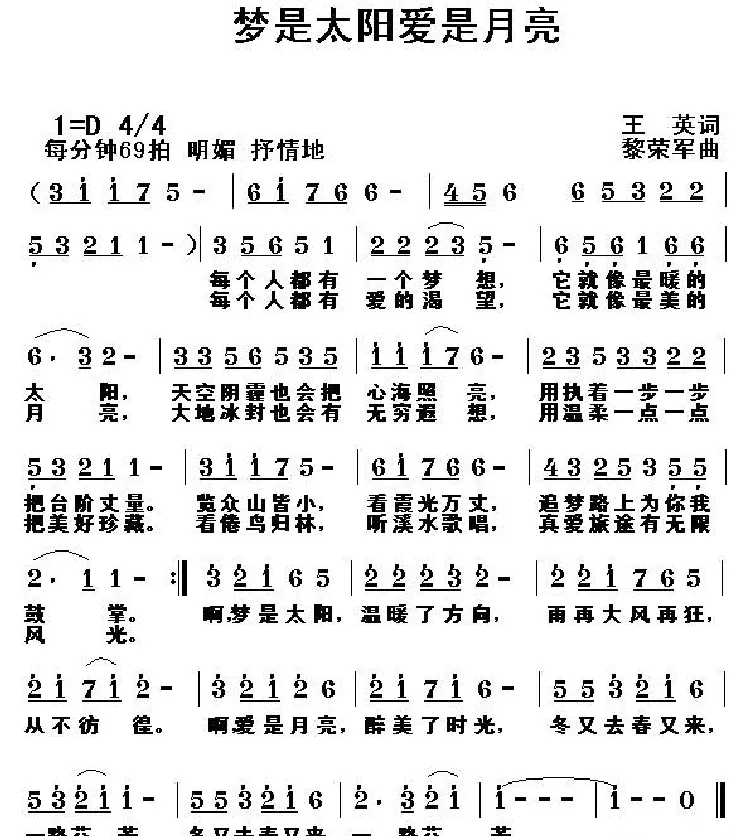 梦是太阳爱是月亮
1=D 4/4 王 英词
每分钟69拍 明媚 抒情地 黎荣军曲
(3 i i 7 5 - | 6 i 7 6 6 - | 4 5 6 6 5 3 2 2 |
5 3 2 1 1 - ) | 3 5 6 5 1 | 2 2 2 3 5 - | 6 5 6 1 6 6 |
每个人都有 一个梦 想, 它就像最暖的
每个人都有 爱的渴 望, 它就像最美的
6 · 3 2 - | 3 3 5 6 5 3 5 | i i i 7 6 - | 2 3 5 3 3 2 2 |
太 阳, 天空阴霾也会把 心海照 亮, 用执着一步一步
月 亮, 大地冰封也会有 无穷遐 想, 用温柔一点一点
5 3 2 1 1 - | 3 i i 7 5 - | 6 i 7 6 6 - | 4 3 2 5 3 5 5 |
把台阶丈量。 览众山皆小, 看霞光万丈, 追梦路上为你我
把美好珍藏。 看倦鸟归林, 听溪水歌唱, 真爱旅途有无限
2 · 1 1 - :‖ 3 2 i 6 5 | 2 2 2 3 2 - | 2 2 i 7 6 5 |
鼓 掌。 啊,梦是太阳, 温暖了方向, 雨再大风再狂,
风 光。
2 i 7 i 2 - | 3 2 i 2 6 | 2 i 7 i 6 - | 5 5 3 2 i 2 |
从不彷 徨。 啊,爱是月亮, 醉美了时光, 冬又去春又来,
5 3 2 i i - | 5 5 3 2 i 6 | 2 · 3 2 i | i - - - | i - - 0 ‖
一路芬 芳。 冬又去春又来 一 路芬 芳。